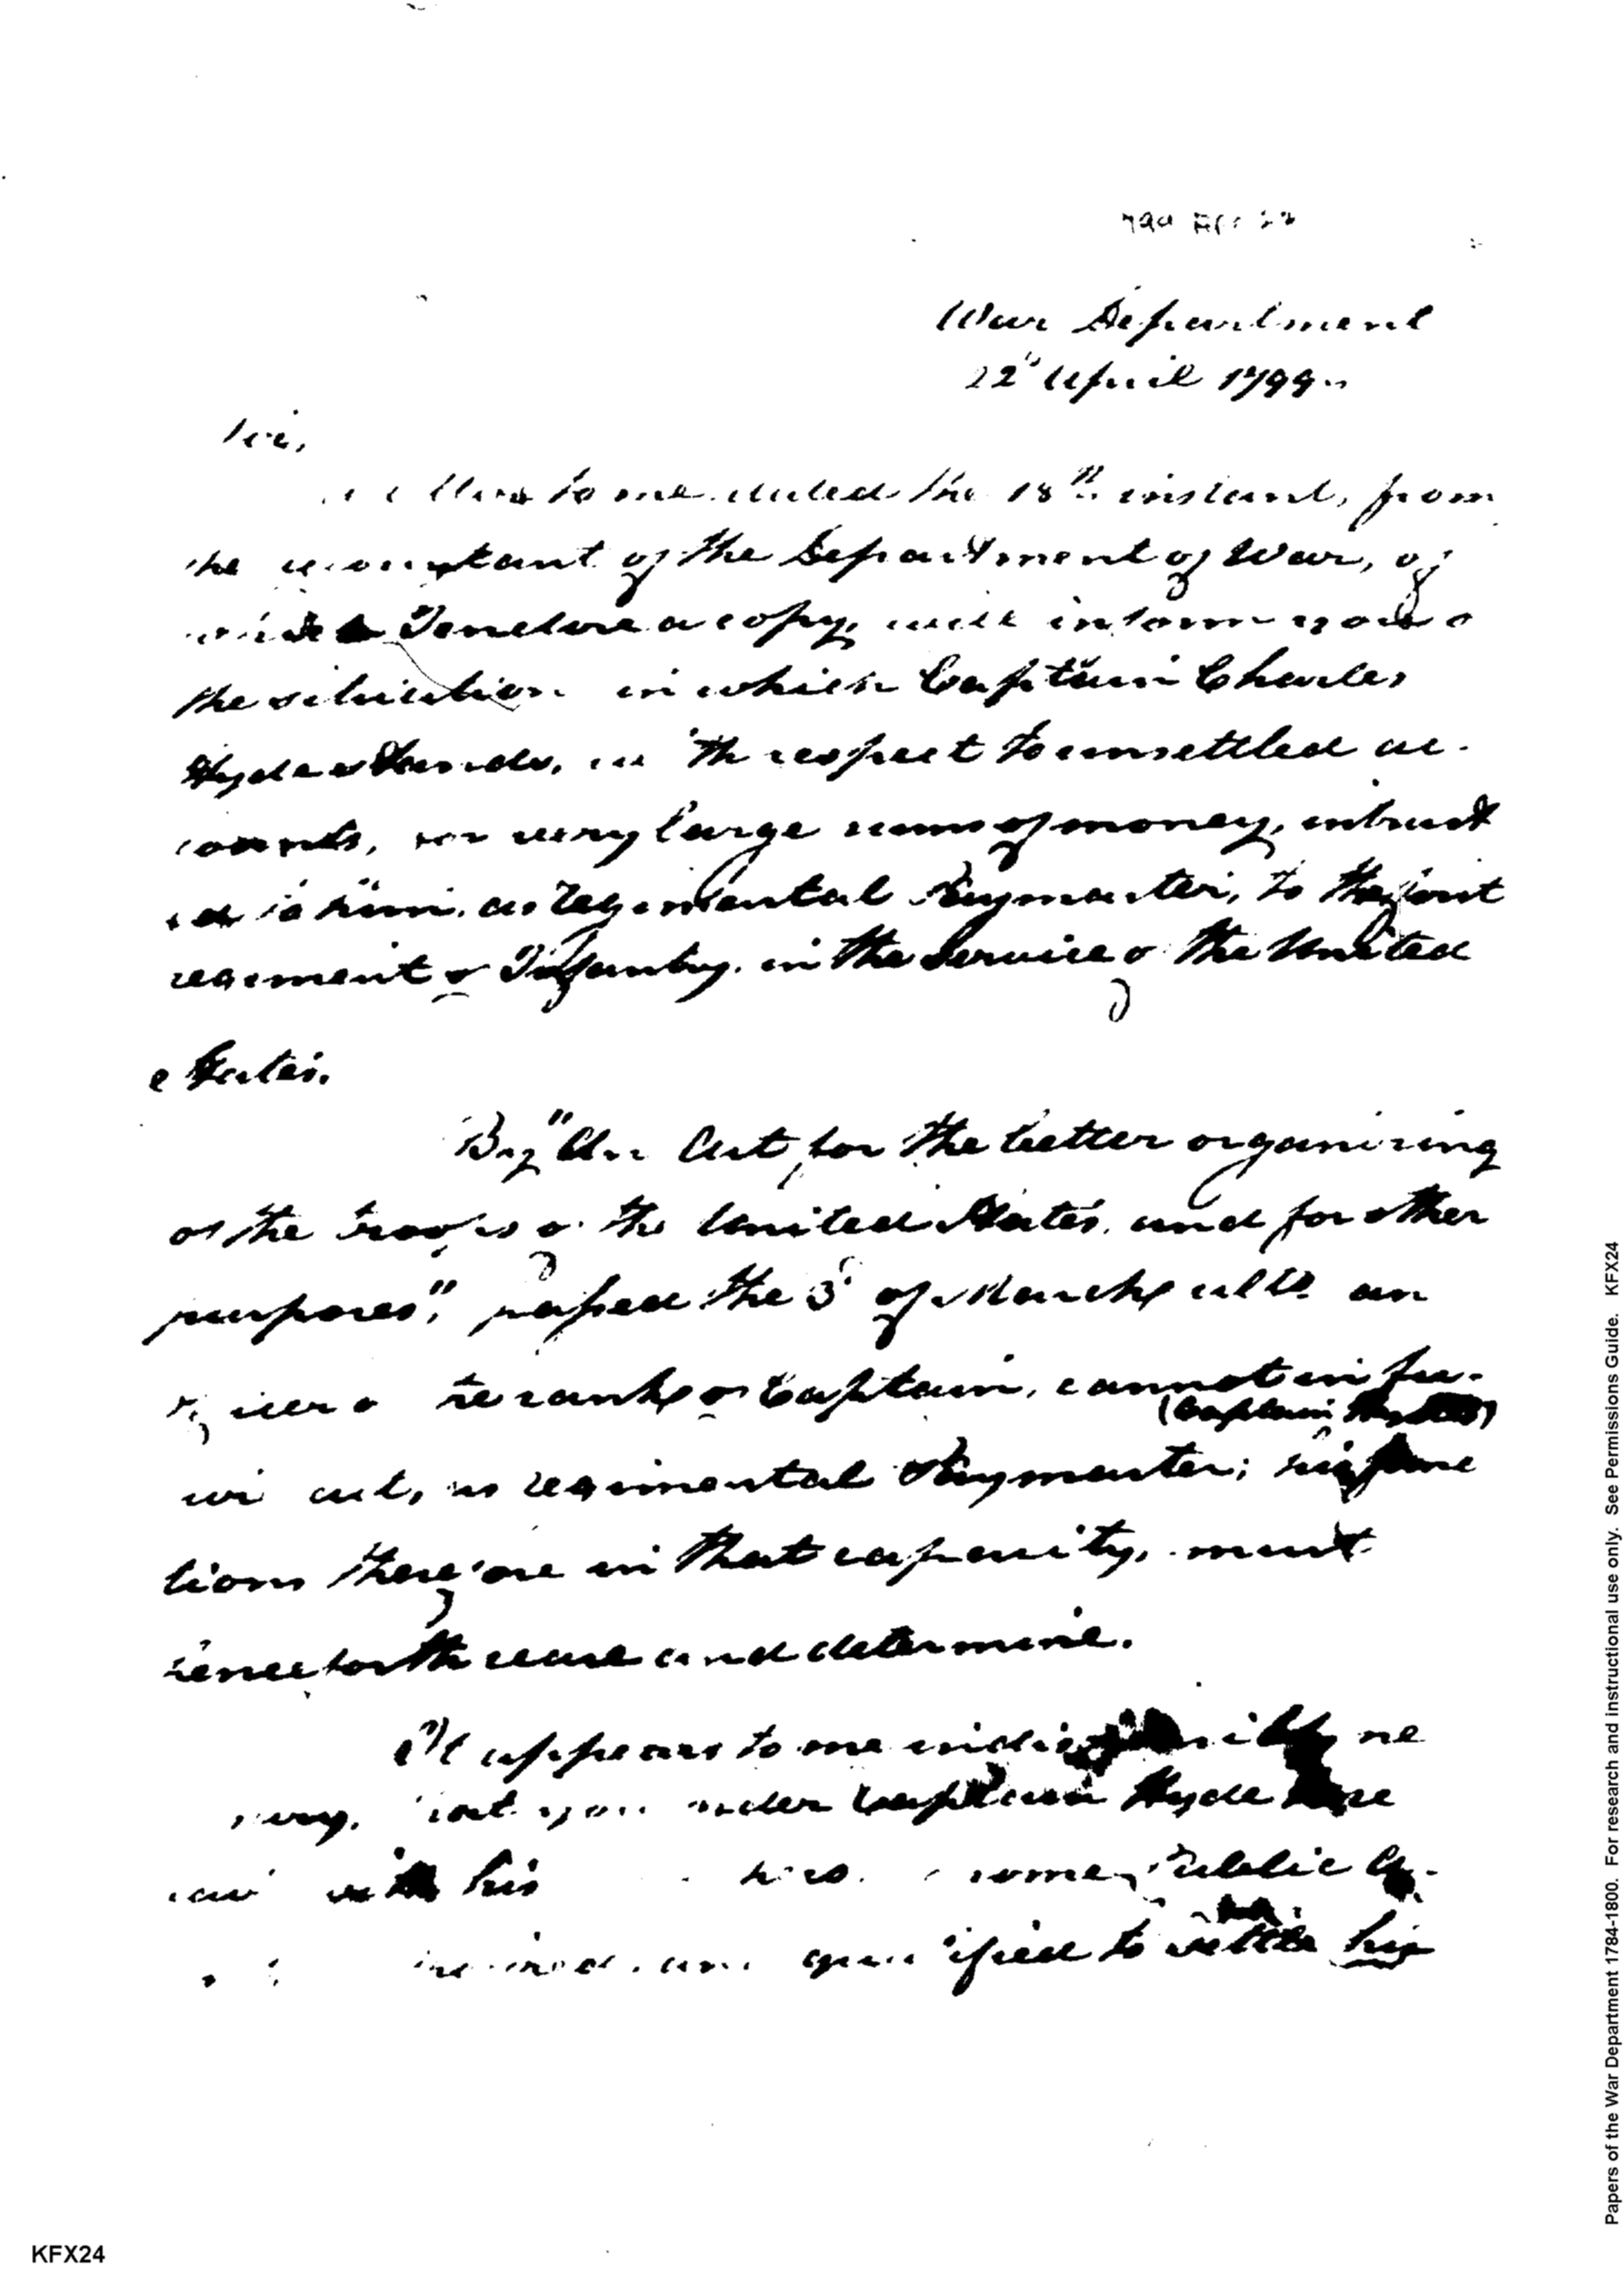 War Department
22d April 1799.
Sir,
to me dated the 18th instant, from
the accountant of the Department of War, of
which I enclose a copy, will inform you of
the situation in which Captain Charles
Hyde stands, with respect to unsettled ac-
counts, for very large sums of money, intrust
ed to him, as regimental Paymaster, to the first
regiment of Infantry, in the Service of the United
States.
By "An Act for the better organizing
of the troops of the United States, and for other
purposes", passed the 3d of March ulto. an
officer of the rank of Captain, cannot in fu-
(Captain Hyde's)
act, as regimental Paymaster; his func
tions therefore in that capacity, must
henceforth cease and determine.
It appears to me ne
that you order Captain Hyde
with his some Public
qualified to settle his
KFX24
Papers of the War Department 1784-1800. For research and instructional use only. See Permissions Guide. KFX24